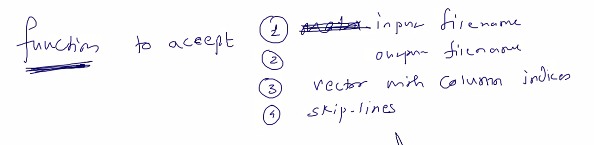 function to accept ① input filename
② output filename
③ vector with column indices
④ skip-lines